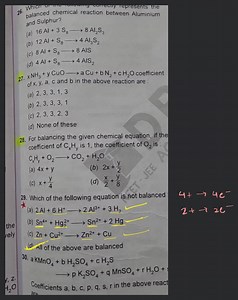 26. Which of the following correctly represents the
balanced chemical reaction between Aluminium
and Sulphur?
(a) 16 Al + 3 S₈ ⟶ 8 Al₂S₃
(b) 12 Al + S₈ ⟶ 4 Al₃S₂
(c) 8 Al + S₈ ⟶ 8 AlS
(d) 4 Al + S₈ ⟶ 4 AlS₂
27. x NH₃ + y CuO ⟶ a Cu + b N₂ + c H₂O coefficient
of x, y, a, c and b in the above reaction are :
(a) 2, 3, 3, 1, 3
(b) 2, 3, 3, 3, 1
(c) 2, 3, 3, 3, 2
(d) None of these
28. For balancing the given chemical equation, if the
coefficient of CₓHᵧ is 1, the coefficient of O₂ is
CₓHᵧ + O₂ ⟶ CO₂ + H₂O
(a) 4x + y
(b) 2x + y/2
(c) x + y/4
29. Which of the following equation is not balanced
(a) 2 Al + 6 H⁺ ⟶ 2 Al³⁺ + 3 H₂
4+ → 4e⁻
(b) Sn⁴⁺ + Hg₂²⁺ ⟶ Sn²⁺ + 2 Hg
2+ → 2e⁻
(c) Zn + Cu²⁺ ⟶ Zn²⁺ + Cu
All of the above are balanced
30. a KMnO₄ + b H₂SO₄ + c H₂S
⟶ p K₂SO₄ + q MnSO₄ + r H₂O +
Coefficients a, b, c, p, q, s, r in the above react